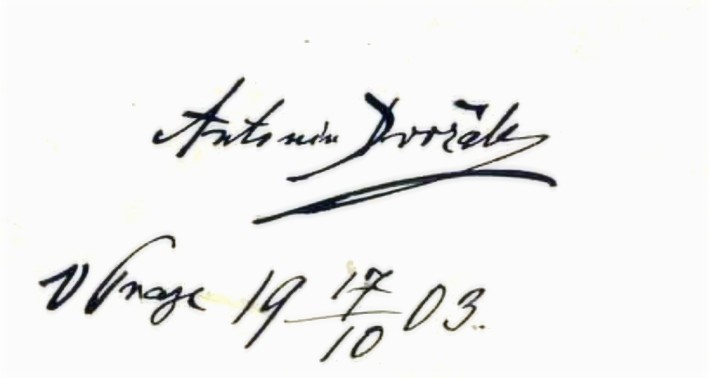 Antonín Dvořák
V Praze 19 17/10 03.